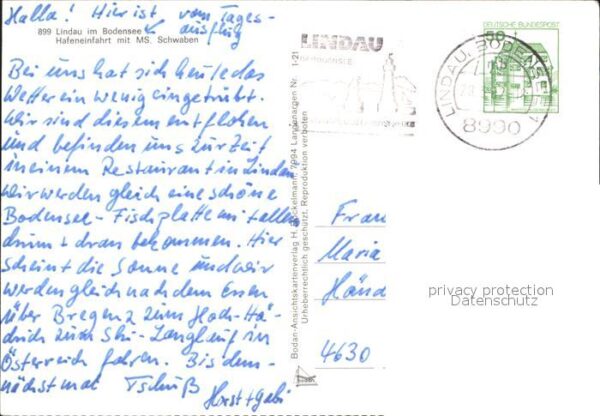 Hallo! Hier ist vom Tages-
ausflug
899 Lindau im Bodensee
Hafeneinfahrt mit MS. Schwaben
Bei uns hat sich heute das
Wetter ein wenig eingetrübt.
Wir sind diesem entflohen
und befinden uns zur Zeit
in einem Restaurant in Lindau
wir werden gleich eine schöne
Bodensee-Fischplatte mit allem
drum + dran bekommen. Hier
scheint die Sonne und wir
werden gleich nach dem Essen
über Bregenz zum Hoch-Hä-
drich zum Ski-Langlauf in
Österreich fahren. Bis dem-
nächst mal Tschüß
Horst + Gabi
Bodan-Ansichtskartenverlag H. Böckelmann, 7994 Langenargen Nr. 1-21
Urheberrechtlich geschützt. Reproduktion verboten
LINDAU
BODENSEE
LINDAU, BODENSEE 1
8990
DEUTSCHE BUNDESPOST
50
Frau
Maria
Händ
4630
privacy protection
Datenschutz